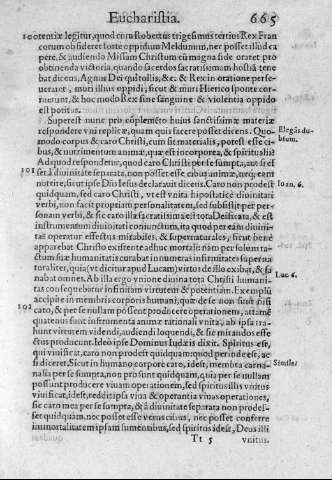 Eucharistia. 665
potentiæ legitur, quod cum Robertus trigesimus tertius Rex Fran
corum obsideret forte oppidum Meldunum, nec posset illud ca
pere, & audiendo Missam Christum cū magna fide oraret pro
obtinenda victoria, quando sacerdos sacratissimam hostiā tene
bat dicens, Agnus Dei qui tollis, &c. & Rex in oratione perse-
ueraret, muri illius oppidi, sicut & muri Hierico sponte cor-
ruerunt, & hoc modo Rex sine sanguine & violentia oppido
est potitus.
Superest nunc pro cōplemēto huius sanctissimæ materiæ
respondere vni replicæ, quam quis facere posset dicens. Quo-
modo corpus & caro Christi, cum sit materialis, potest esse ci-
bus, & nutrimentum animæ, quæ est incorporea, & spiritualis?
Ad quod respondetur, quod caro Christi per se sumpta, aut si es-
set à diuinitate separata, non posset esse cibus animæ, neq; eam
nutrire, sicut ipse Dñs Iesus declarauit dicens. Caro non prodest
quidquam, sed caro Christi, vt est vnita hipostaticè diuinitati
verbi, non facit propriam personalitatem, sed subsistit per per-
sonam verbi, & sic caro illa sacratissima est tota Deificata, & est
instrumentum diuinitati coniunctum, ita quod per eam diuini
tas operatur effectus mirabiles, & supernaturales, sicut benè
apparebat Christo existente adhuc mortali: nam per solum tac-
tum suæ humanitatis curabat in numeras infirmitates superna
turaliter, quia (vt dicitur apud Lucam) virtus de illo exibat, & sa
nabat omnes. Ab illa ergo vnione diuina tota Christi humani-
tas consequebatur infinitam virtutem & potentiam. Exemplū
accipite in membris corporis humani, quæ de se non sunt nisi
caro, & per se nullam possent producere operationem, attamē
quatenus sunt instrumenta animæ rationali vnita, ab ipsa tra-
hunt virtutem videndi, audiendi, loquendi, & sic mirandos effec
tus producunt. Ideò ipse Dominus Iudæis dixit. Spiritus est,
qui viuificat, caro non prodest quidquam: quod perinde est, ac
si diceret. Sicut in humano corpore caro, idest, membra carna-
lia per se sumpta, non prosunt quidquam, quia per se nullam
possunt producere viuam operationem, sed spiritus illis vnitus
viuificat, idest, reddit ipsa viua & operantia viuas operationes,
sic caro mea per se sumpta, & à diuinitate separata non prodes-
set quidquam, nec posset esse viuus cibus, nec posset conferre
immortalitatem ipsam sumentibus, sed spiritus idest, Deus illi
Tt 5 vnitus.
Elegās du-
bium.
101
Ioan. 6.
Luc. 6.
102
Simile.